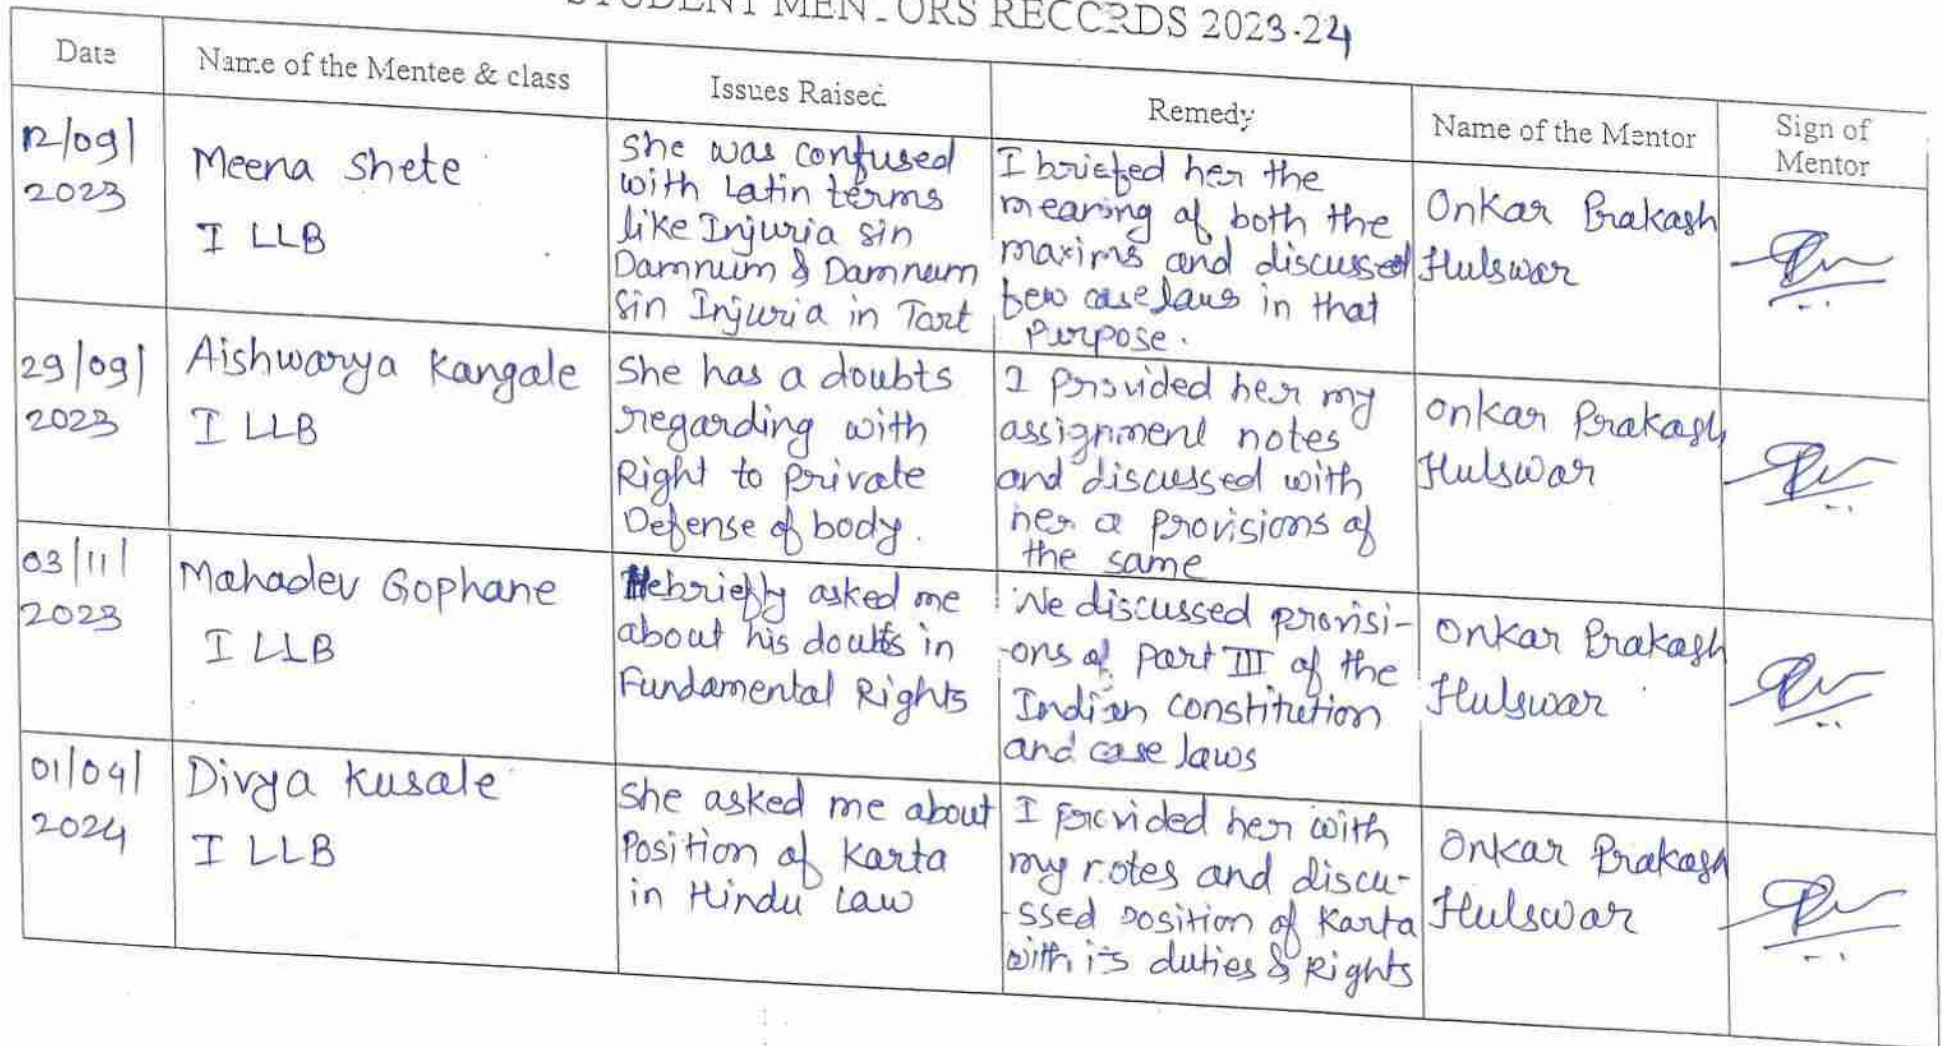 STUDENT MENTORS RECORDS 2023-24
Date
Name of the Mentee & class
Issues Raised
Remedy
Name of the Mentor
Sign of
Mentor
12/09/
2023
Meena Shete
I LLB
She was confused
with Latin terms
like Injuria sin
Damnum & Damnum
sin Injuria in Tort
I briefed her the
meaning of both the
maxims and discussed
few case laws in that
Purpose.
Onkar Prakash
Hulswar
29/09/
2023
Aishwarya Kangale
I LLB
She has a doubts
regarding with
Right to private
Defense of body.
I provided her my
assignment notes
and discussed with
her a provisions of
the same
Onkar Prakash
Hulswar
03/11/
2023
Mahadev Gophane
I LLB
He briefly asked me
about his doubts in
Fundamental Rights
We discussed provisi-
-ons of part III of the
Indian constitution
and case laws
Onkar Prakash
Hulswar
01/04/
2024
Divya Kusale
I LLB
She asked me about
Position of Karta
in Hindu Law
I provided her with
my notes and discu-
-ssed position of Karta
with its duties & Rights
Onkar Prakash
Hulswar